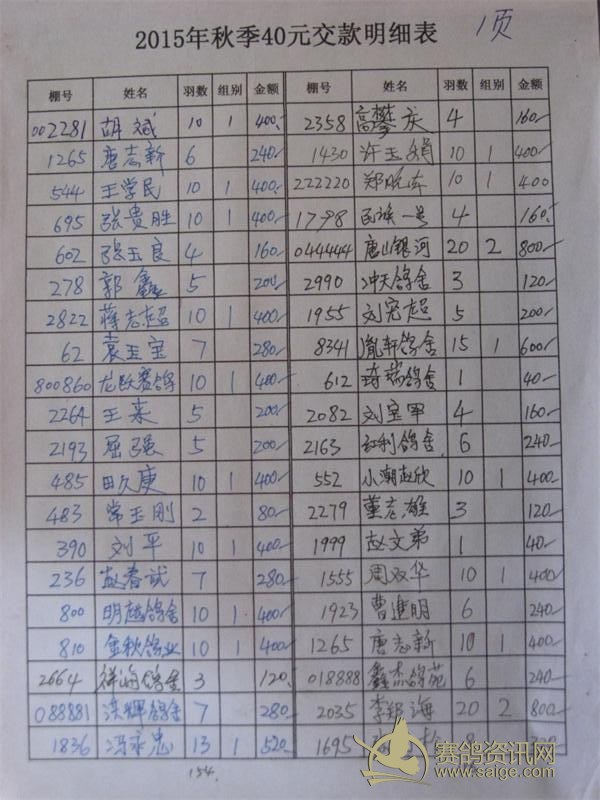 2015年秋季40元交款明细表 1页
棚号 姓名 羽数 组别 金额 棚号 姓名 羽数 组别 金额
002281 胡斌 10 1 400 2358 高攀庆 4 160
1265 唐志新 6 240 1430 许玉娟 10 1 400
544 王学民 10 1 400 222220 郑晓东 10 1 400
695 张贵胜 10 1 400 1798 民族一号 4 160
602 张玉良 4 160 044444 唐山银河 20 2 800
278 郭鑫 5 200 2990 冲天鸽舍 3 120
2822 蒋志超 10 1 400 1955 刘宪超 5 200
62 袁玉宝 7 280 8341 胤轩鸽舍 15 1 600
800860 龙跃赛鸽 10 1 400 612 琦瑞鸽舍 1 40
2264 王来 5 200 2082 刘宝甲 4 160
2193 屈强 5 200 2163 红利鸽舍 6 240
485 田久庚 10 1 400 552 小潮赵欣 10 1 400
483 常玉刚 2 80 2279 董志雄 3 120
390 刘平 10 1 400 1999 赵文弟 1 40
236 赵春武 7 280 1555 周双华 10 1 400
800 明越鸽舍 10 1 400 1923 曹进明 6 240
810 金秋鸽业 10 1 400 1265 唐志新 10 1 400
2664 祥海鸽舍 3 120 018888 鑫杰鸽苑 6 240
088881 洪辉鸽舍 7 280 2035 李绍海 20 2 800
1836 冯永忠 13 1 520 1695 松 8 320
154
赛鸽资讯网
www.saige.com